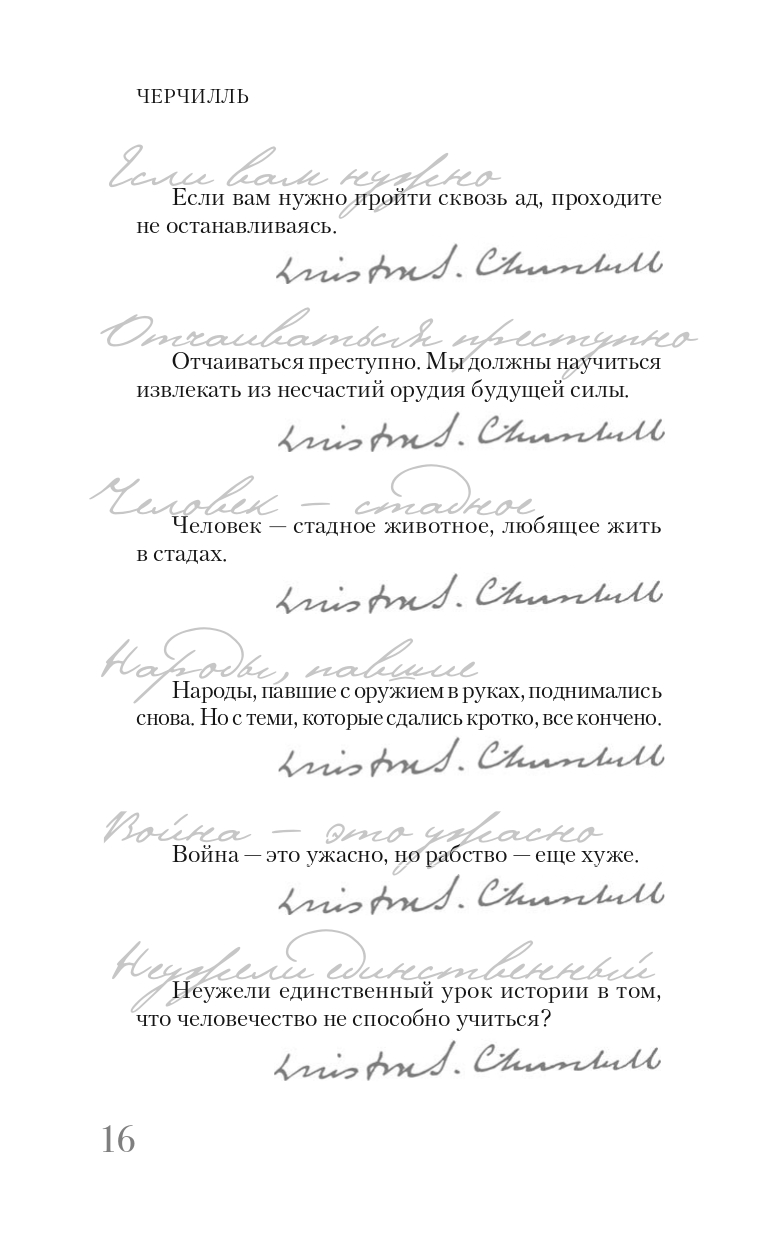 ЧЕРЧИЛЛЬ
Если вам нужно
Если вам нужно пройти сквозь ад, проходите
не останавливаясь.
Winston S. Churchill
Отчаиваться преступно
Отчаиваться преступно. Мы должны научиться
извлекать из несчастий орудия будущей силы.
Winston S. Churchill
Человек — стадное
Человек — стадное животное, любящее жить
в стадах.
Winston S. Churchill
Народы, павшие
Народы, павшие с оружием в руках, поднимались
снова. Но с теми, которые сдались кротко, все кончено.
Winston S. Churchill
Война — это ужасно
Война — это ужасно, но рабство — еще хуже.
Winston S. Churchill
Неужели единственный
Неужели единственный урок истории в том,
что человечество не способно учиться?
Winston S. Churchill
16